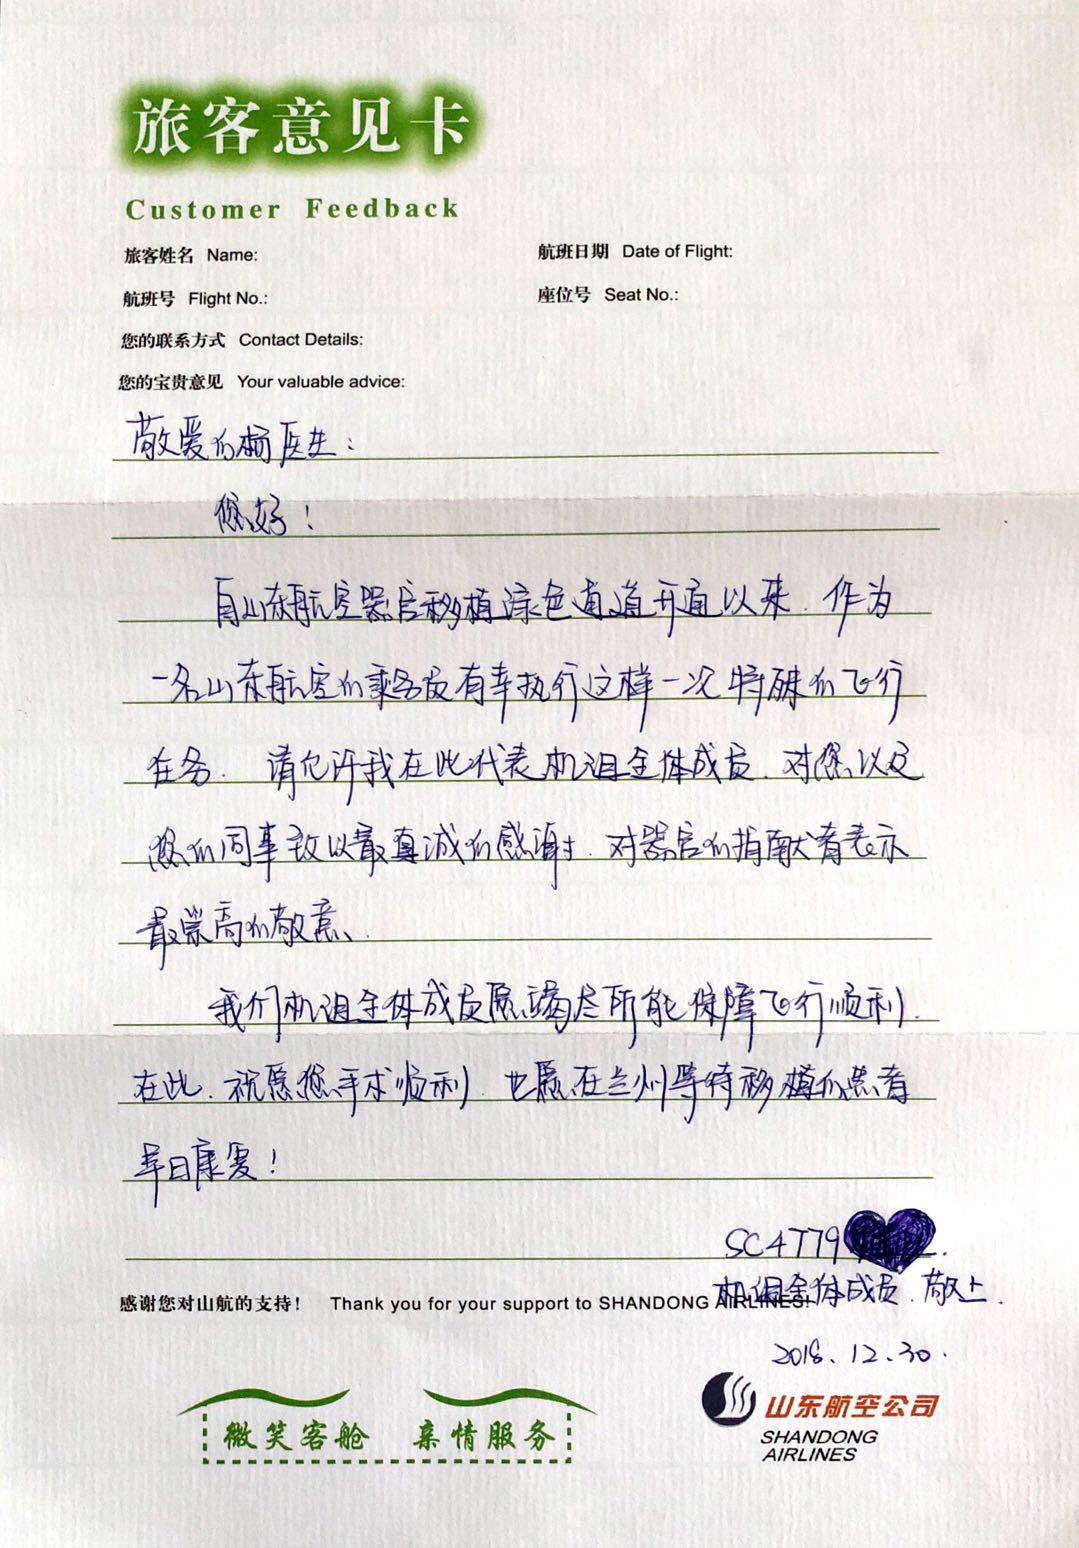 旅客意见卡
Customer Feedback
旅客姓名 Name: 航班日期 Date of Flight:
航班号 Flight No.: 座位号 Seat No.:
您的联系方式 Contact Details:
您的宝贵意见 Your valuable advice:
敬爱的杨医生：
您好！
自山东航空器官移植绿色通道开通以来，作为
一名山东航空的乘务员有幸执行这样一次特殊的飞行
任务。请允许我在此代表机组全体成员，对您以及
您的同事致以最真诚的感谢，对器官的捐献者表示
最崇高的敬意、
我们机组全体成员愿竭尽所能保障飞行顺利。
在此，祝愿您手术顺利，也愿在兰州等待移植的患者
早日康复！
SC4779
机组全体成员，敬上。
感谢您对山航的支持！ Thank you for your support to SHANDONG AIRLINES!
2018.12.30.
微笑客舱 亲情服务
山东航空公司
SHANDONG
AIRLINES